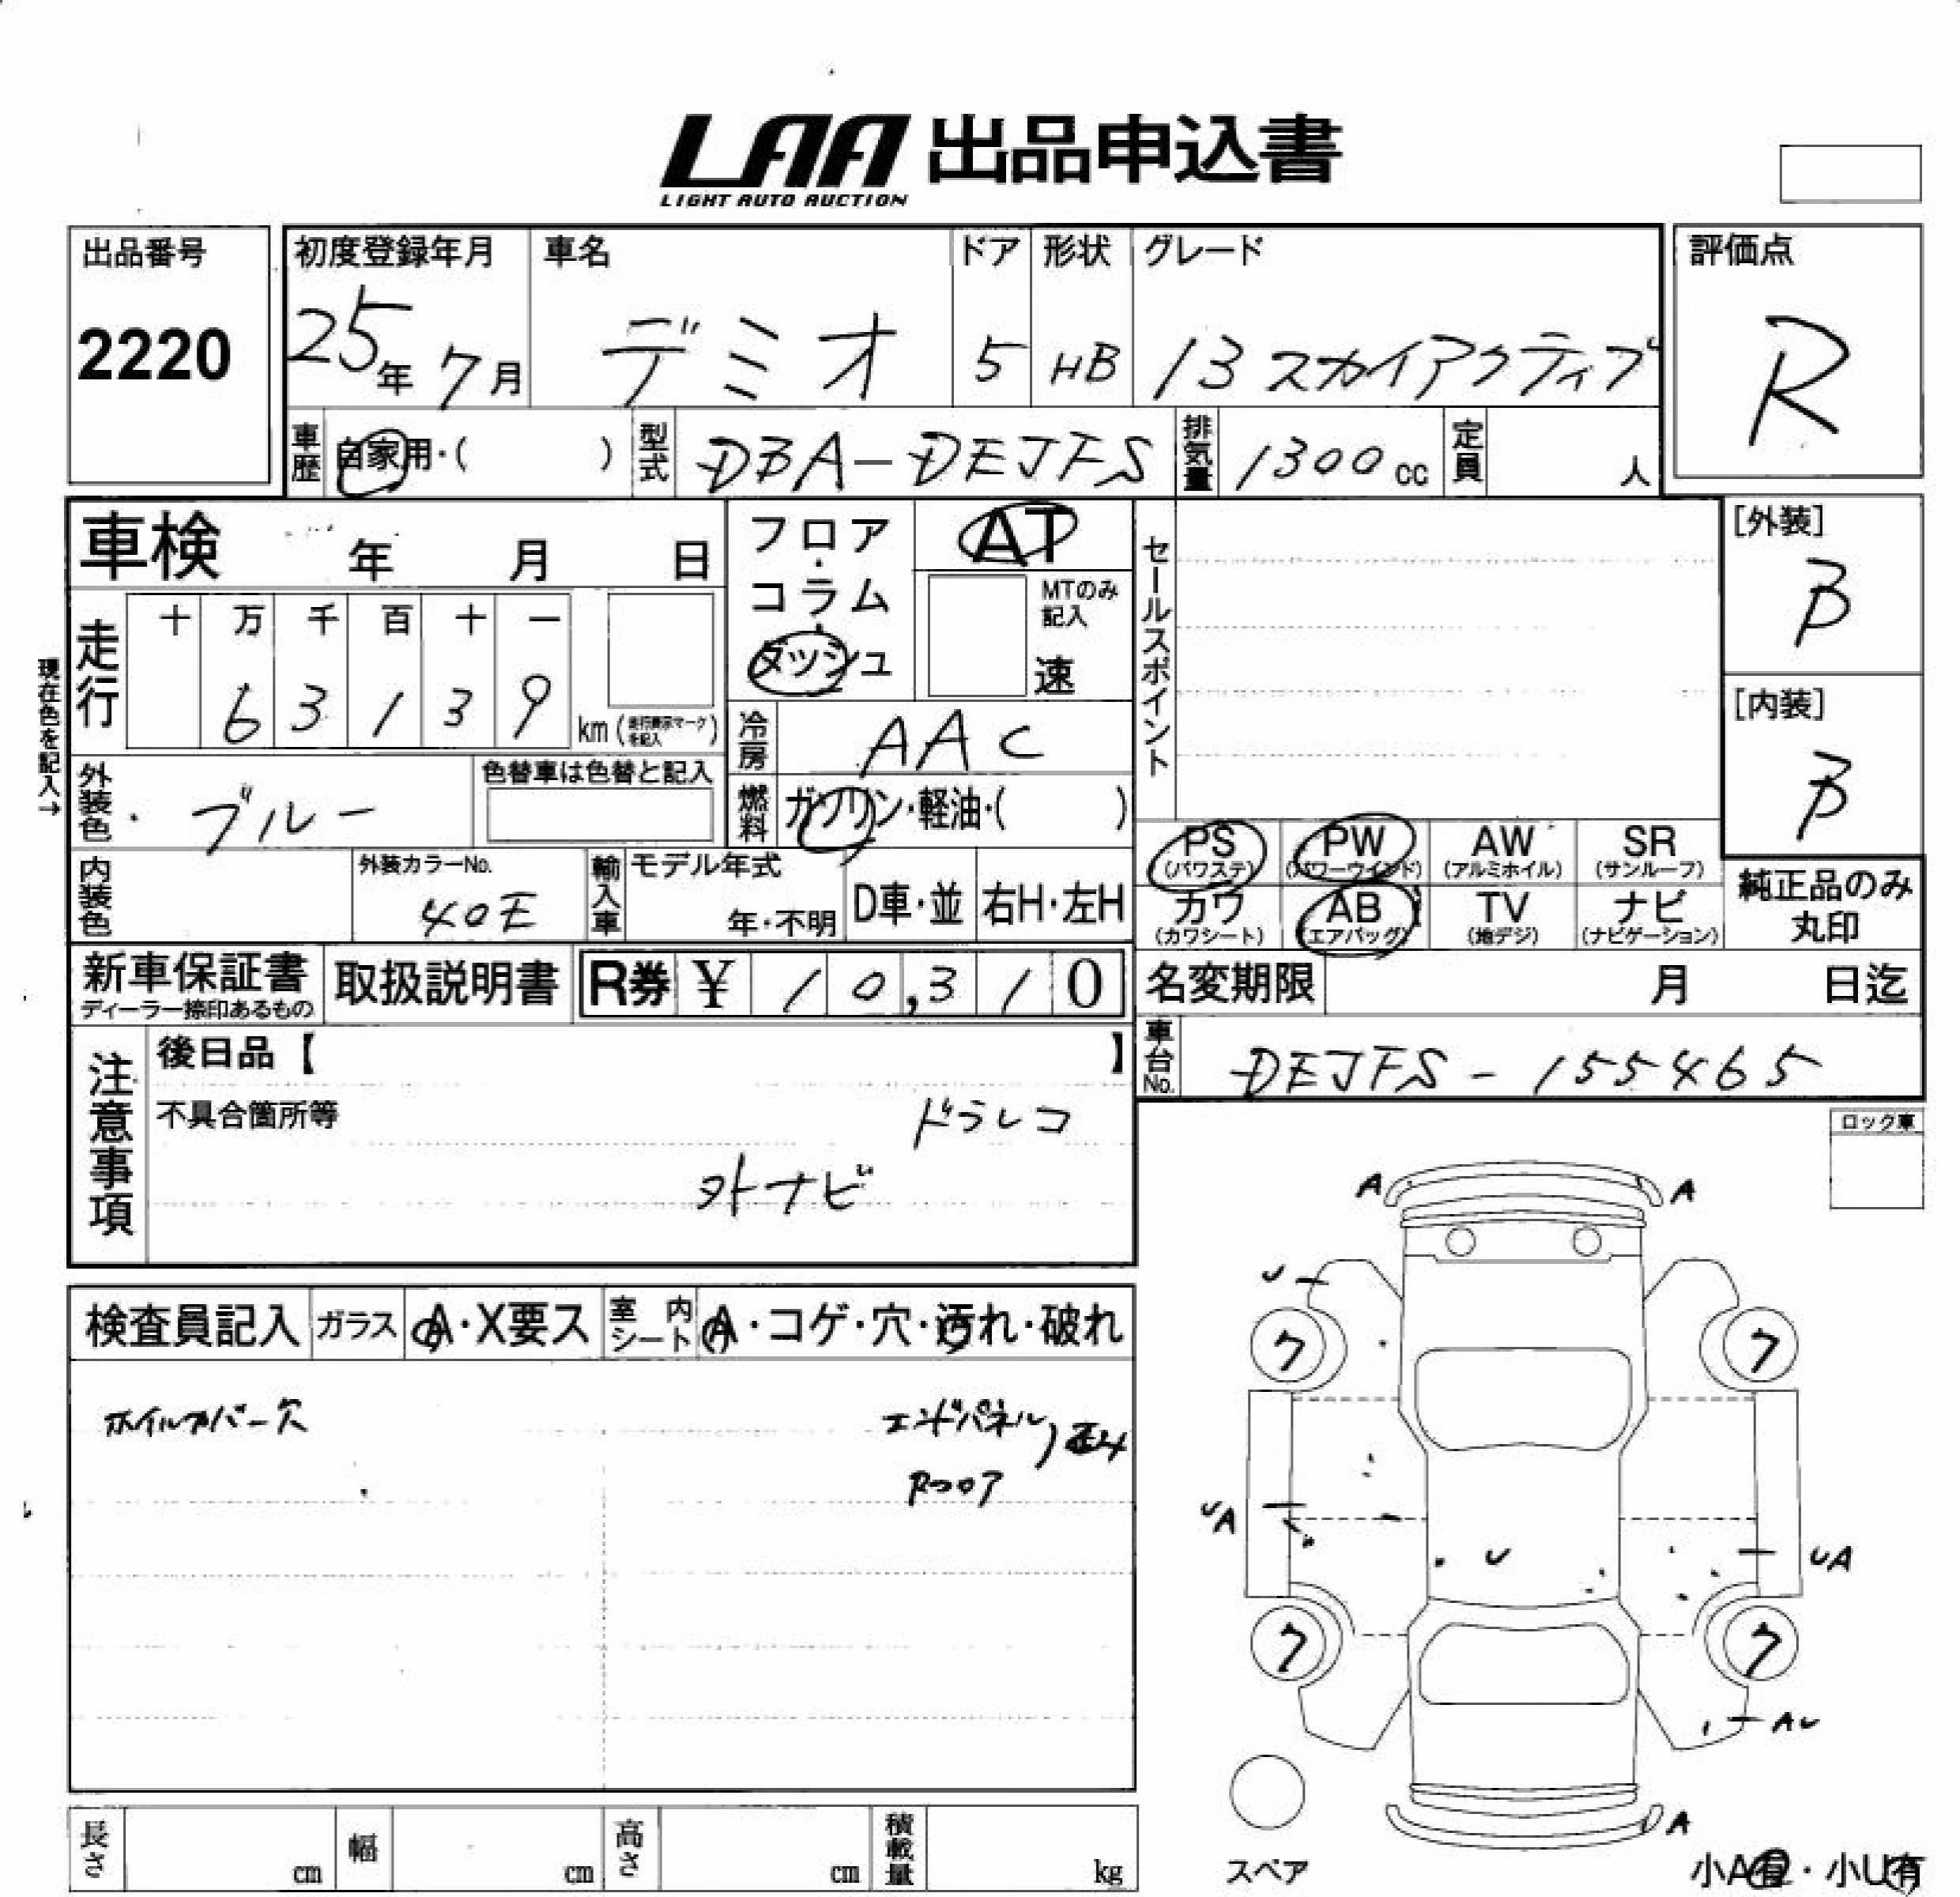 LAA 出品申込書
LIGHT AUTO AUCTION
出品番号
2220
初度登録年月
25年 7月
車名
デミオ
ドア
5
形状
HB
グレード
13 スカイアクティブ
評価点
R
車歴 自家用・( )
型式 DBA-DEJFS
排気量 1300 cc
定員 人
車検 年 月 日
フロア・コラム・ダッシュ
AT
MTのみ記入
速
セールスポイント
[外装]
B
[内装]
B
現在色を記入→
走行
十 万 千 百 十 一
6 3 1 3 9 km (走行表示マークを記入)
冷房 AAC
外装色 ブルー
色替車は色替と記入
燃料 ガソリン・軽油・( )
PS (パワステ)
PW (パワーウインド)
AW (アルミホイル)
SR (サンルーフ)
カワ (カワシート)
AB (エアバッグ)
TV (地デジ)
ナビ (ナビゲーション)
純正品のみ丸印
内装色
外装カラーNo.
40E
輸入車
モデル年式
年・不明
D車・並
右H・左H
新車保証書
ディーラー捺印あるもの
取扱説明書
R券 ¥ 10,310
名変期限 月 日迄
車台No. DEJFS-155465
注意事項
後日品【 】
不具合箇所等
ドラレコ
外ナビ
ロック車
検査員記入
ガラス
A・X要ス
室内シート
A・コゲ・穴・汚れ・破れ
ホイルカバー欠
エンドパネル
Rフロア
歪み
A
A
U
ワ
ワ
UA
U
UA
ワ
ワ
AU
A
スペア
小A有・小U有
長さ cm
幅 cm
高さ cm
積載量 kg